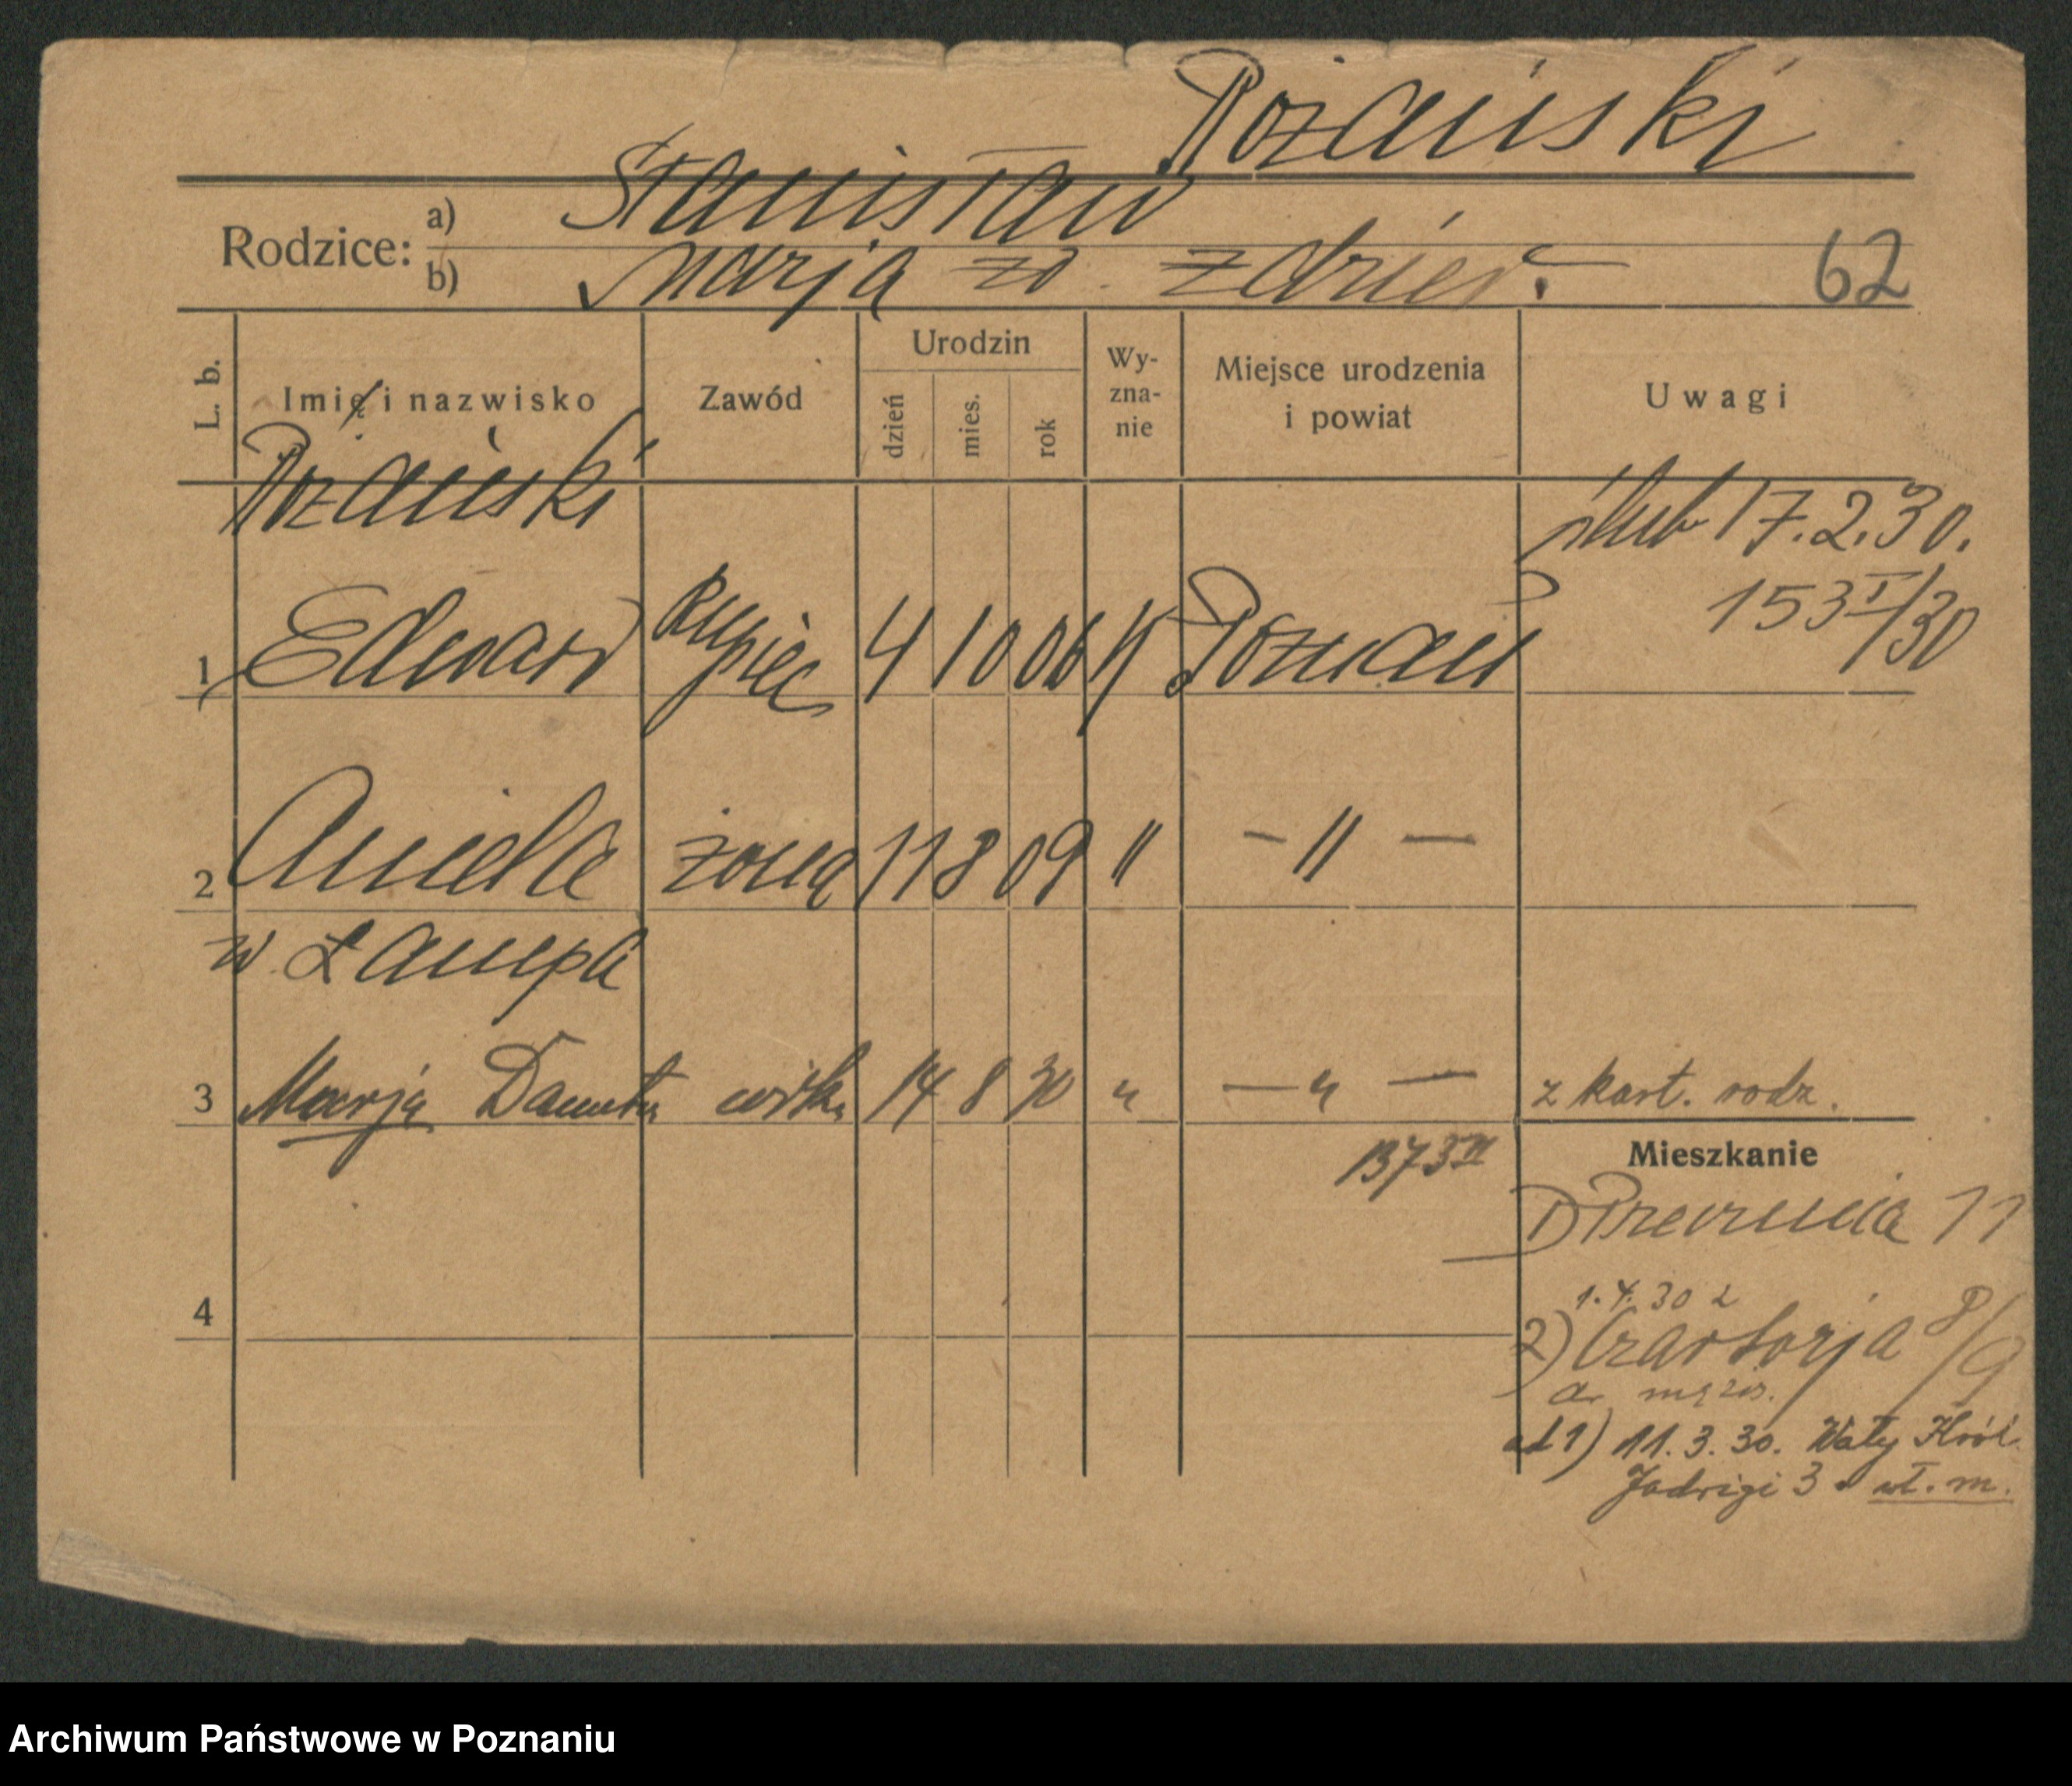 Rożański
Rodzice: a) Stanisław
b) Marja w
62
L. b.
Imię i nazwisko
Zawód
Urodzin
dzień
mies.
rok
Wy-
zna-
nie
Miejsce urodzenia
i powiat
Uwagi
Rożański
ślub 17.2.30.
153 I/30
1 Edward kupiec 4 10 06 K Poznań
2 Aniela żona 11 8 09 " — " —
w Łampa
3 Marja Danuta córka 14 8 30 " — " — z kart. rodz.
1373 II
Mieszkanie
1) 11
4
1.4.30 z
2) Czartorja 8/9
ad 1) 11.3.30. Wały Król.
Jadwigi 3 wł. m.
Archiwum Państwowe w Poznaniu